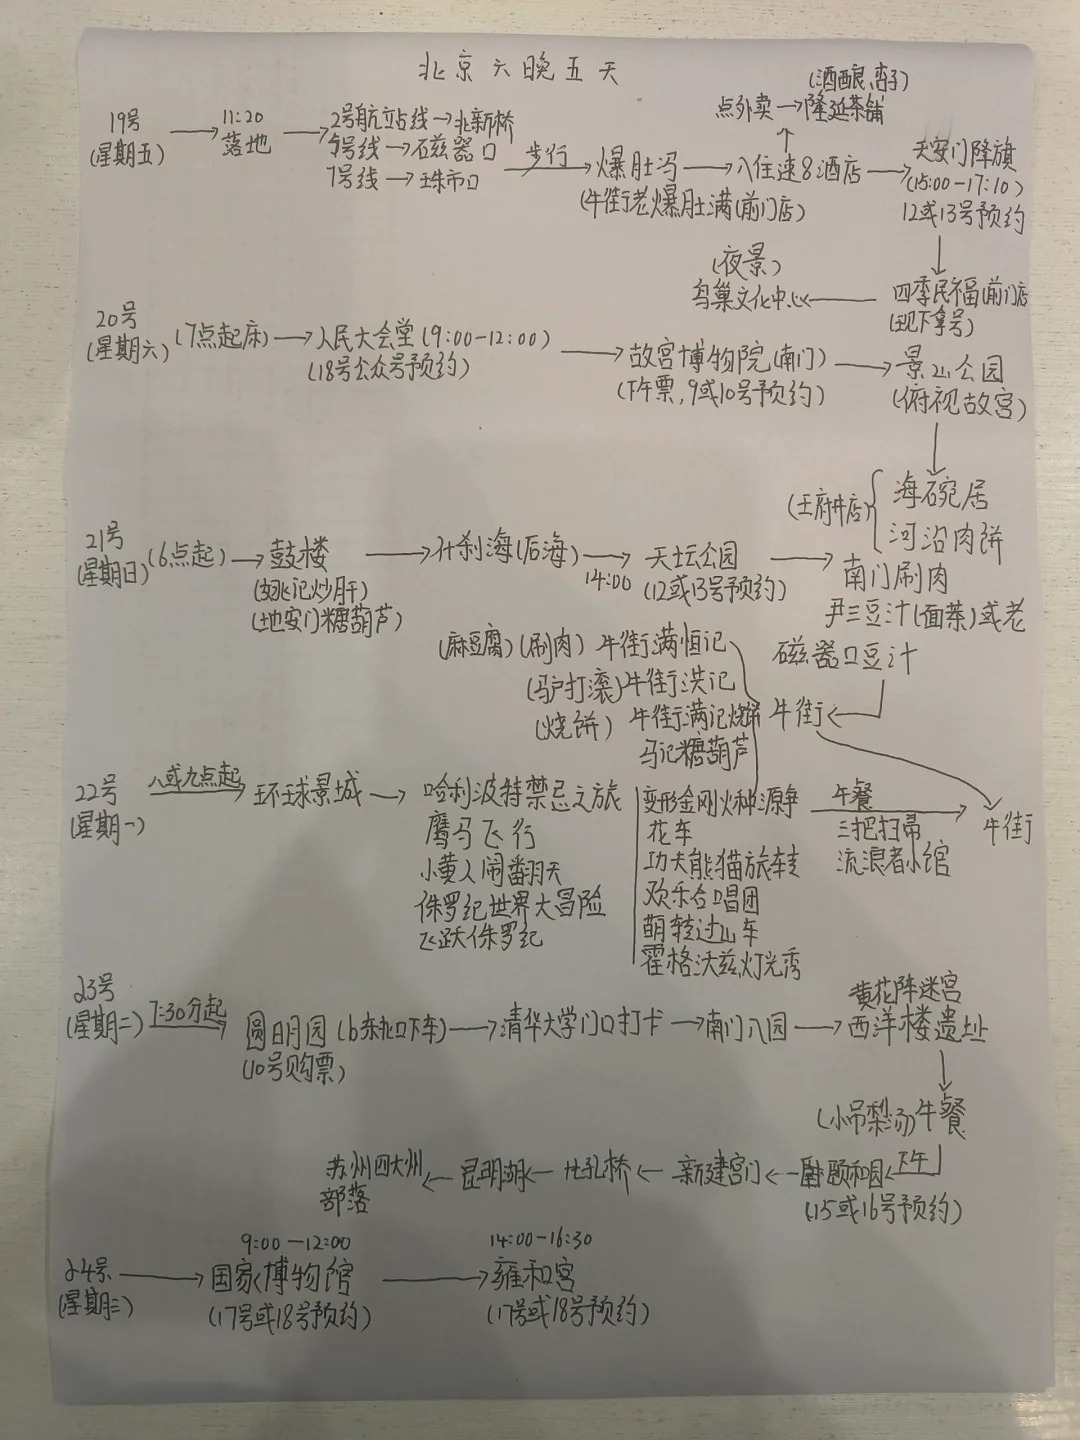 北京六晚五天
19号
(星期五)
11:20
落地
2号航站线→北新桥
5号线→磁器口
7号线→珠市口
步行
爆肚冯
(牛街老爆肚满(前门店)
入住速8酒店
点外卖→隆延茶铺
(酒酿杏子)
天安门降旗
(15:00-17:10)
12或13号预约
四季民福(前门店
(现下拿号)
(夜景)
鸟巢文化中心
20号
(星期六)
(7点起床)
人民大会堂(9:00-12:00)
(18号公众号预约)
故宫博物院(南门)
(下午票,9或10号预约)
景山公园
(俯视故宫)
(王府井店)
海碗居
河沿肉饼
21号
(星期日)
(6点起)
鼓楼
(姚记炒肝)
(地安门糖葫芦)
什刹海(后海)
14:00
天坛公园
(12或13号预约)
南门刷肉
尹三豆汁(面茶)或老
磁器口豆汁
牛街
(麻豆腐)(刷肉)牛街满恒记
(驴打滚)牛街洪记
(烧饼)牛街满记烧饼
马记糖葫芦
22号
(星期一)
八或九点起
环球景城
哈利波特禁忌之旅
鹰马飞行
小黄人闹翻天
侏罗纪世界大冒险
飞跃侏罗纪
变形金刚火种源争
花车
功夫熊猫旅
欢乐合唱团
萌转过山车
霍格沃兹灯光秀
午餐
三把扫帚
流浪者小馆
牛街
23号
(星期二)
7:30分起
圆明园(b东北口下车)
(10号购票)
清华大学门口打卡
南门入园
黄花阵迷宫
西洋楼遗址
(小吊梨汤)午餐
下午
颐和园
(15或16号预约)
新建宫门
十七孔桥
昆明湖
苏州四大州
部落
24号
(星期三)
9:00-12:00
国家博物馆
(17号或18号预约)
14:00-16:30
雍和宫
(17号或18号预约)